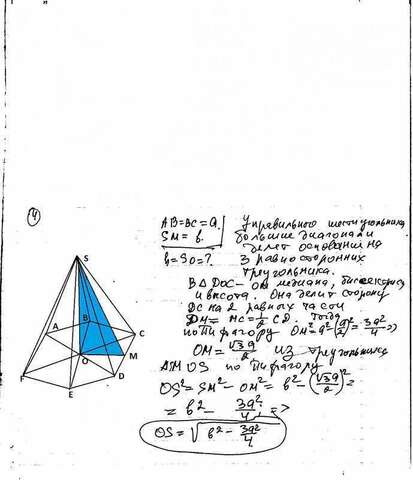 4
S
A
B
C
O
M
F
E
D
AB=BC=a.
SM=b.
h=SO=?
У правильного шестиугольника
большие диагонали
делят основания на
3 равносторонних
треугольника.
В ΔDOC- OM медиана, биссектриса
и высота. Она делит сторону
DC на 2 равных части
DM = MC = 1/2 CD. Тогда
по Пифагору OM²=a²-(a/2)²=3a²/4 =>
OM = √3a/2 из треугольника
ΔMOS по Пифагору
OS²=SM²-OM²=b²-(√3a/2)²=
= b² - 3a²/4 =>
OS = √b² - 3a²/4